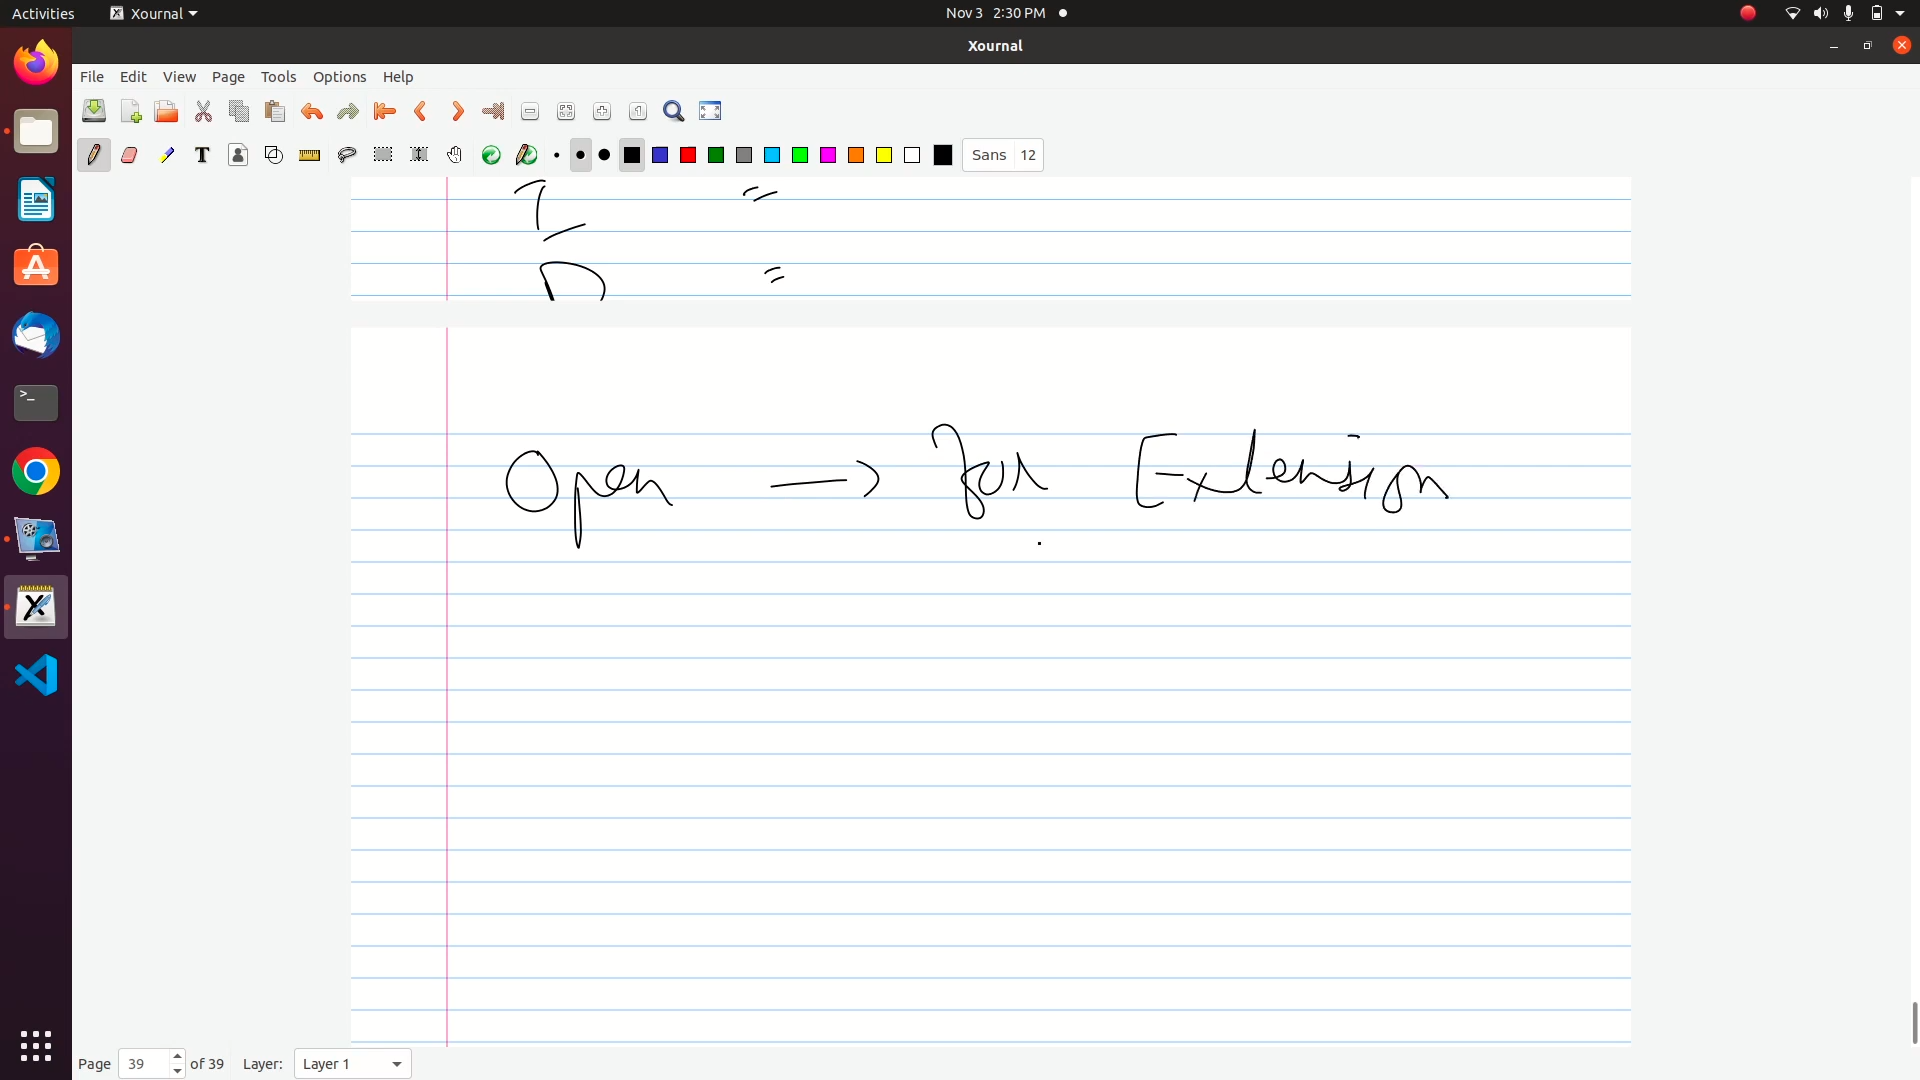 Activities
Xournal
Nov 3 2:30 PM
Xournal
File Edit View Page Tools Options Help
Sans 12
I =
D =
Open → for Extension
Page 39 of 39 Layer: Layer 1